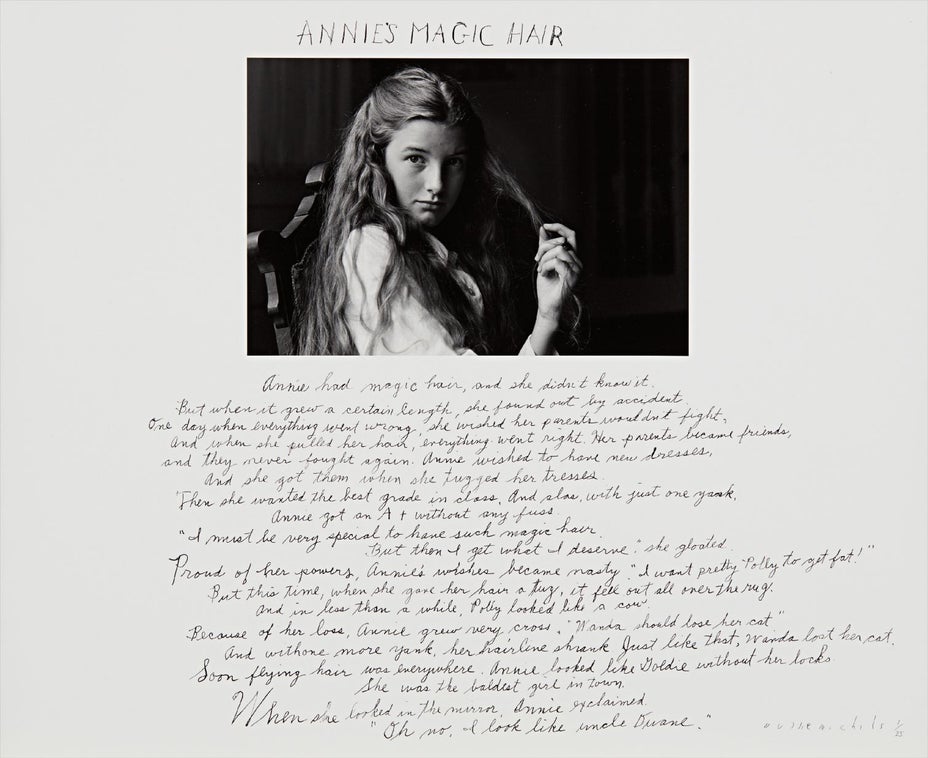 ANNIE'S MAGIC HAIR
Annie had magic hair, and she didn't know it.
But when it grew a certain length, she found out by accident.
One day when everything went wrong, she wished her parents wouldn't fight,
And when she pulled her hair, everything went right. Her parents became friends,
and they never fought again. Annie wished to have new dresses,
And she got them when she tugged her tresses.
Then she wanted the best grade in class, And alas, with just one yank,
Annie got an A+ without any fuss.
"I must be very special to have such magic hair.
But then I get what I deserve." she gloated.
Proud of her powers, Annie's wishes became nasty. "I want pretty Polly to get fat!"
But this time, when she gave her hair a tug, it fell out all over the rug.
And in less than a while, Polly looked like a cow.
Because of her loss, Annie grew very cross. "Wanda should lose her cat"
And with one more yank, her hairline shrank. Just like that, Wanda lost her cat.
Soon flying hair was everywhere. Annie looked like Goldie without her locks.
She was the baldest girl in town.
When she looked in the mirror, Annie exclaimed.
"Oh no, I look like uncle Duane."
1/25